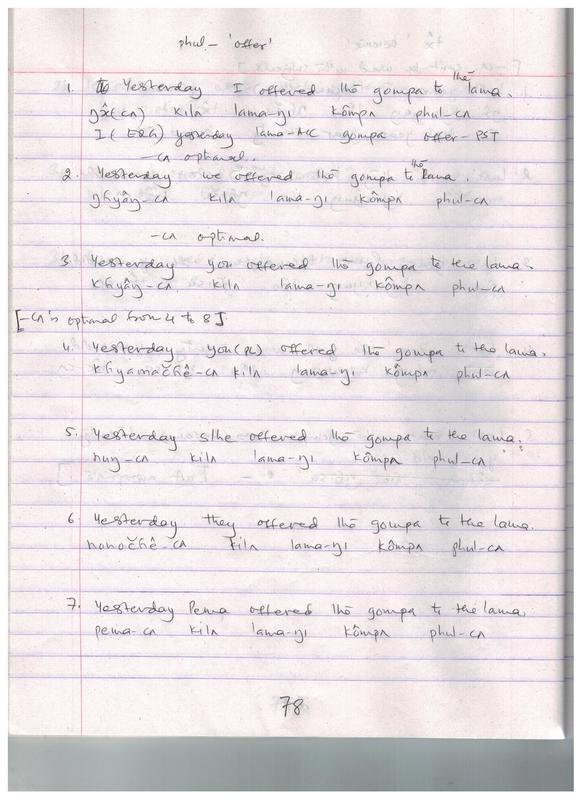 phul – 'offer'
1. Yesterday I offered the gompa to the lama.
kiln lama-ŋı kômpʌ phul-cʌ
I (ERG) yesterday lama-ACC gompa offer-PST
-cʌ optional.
2. Yesterday we offered the gompa to the lama.
ghyâŋ-cʌ kilʌ lama-ŋı kômpʌ phul-cʌ
-cʌ optional.
3. Yesterday you offered the gompa to the lama.
khyâŋ-cʌ kilʌ lama-ŋı kômpʌ phul-cʌ
[-cʌ is optional from 4 to 8]
4. Yesterday you(PL) offered the gompa to the lama.
khyamačhê-cʌ kilʌ lama-ŋı kômpʌ phul-cʌ
5. Yesterday s/he offered the gompa to the lama.
huŋ-cʌ kilʌ lama-ŋı kômpʌ phul-cʌ
6 Yesterday they offered the gompa to the lama.
honočhê-cʌ kilʌ lama-ŋı kômpʌ phul-cʌ
7. Yesterday Pema offered the gompa to the lama
pema-cʌ kilʌ lama-ŋı kômpʌ phul-cʌ
78